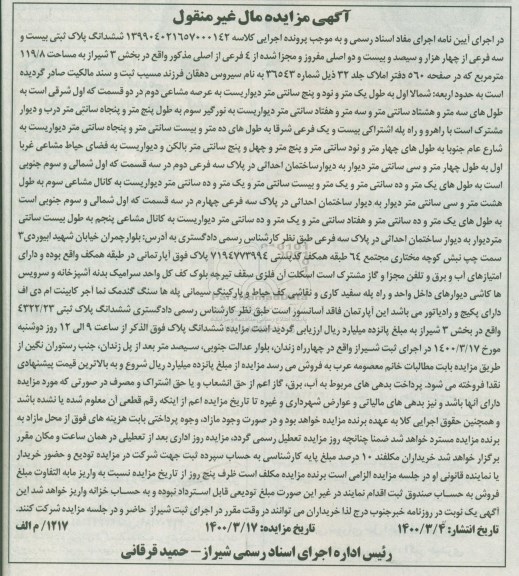 آگهی مزایده مال غیر منقول
در اجرای آیین نامه اجرای مفاد اسناد رسمی و به موجب پرونده اجرایی کلاسه ۱۳۹۹۰۴۰۲۱۶۵۷۰۰۰۱۴۲ ششدانگ پلاک ثبتی بیست و
سه فرعی از چهار هزار و سیصد و بیست و دو اصلی مفروز و مجزا شده از ۴ فرعی از اصلی مذکور واقع در بخش ۳ شیراز به مساحت ۱۱۹/۸
مترمربع که در صفحه ۵۶۰ دفتر املاک جلد ۳۲ ذیل شماره ۳۶۵۴۳ به نام سیروس دهقان فرزند مسیب ثبت و سند مالکیت صادر گردیده
است به حدود اربعه: شمالا اول به طول یک متر و نود و پنج سانتی متر دیواریست به عرصه مشاعی دوم در دو قسمت که اول شرقی است به
طول های سه متر و هشتاد سانتی متر و سه متر و هفتاد سانتی متر دیواریست به نورگیر سوم به طول پنج متر و پنجاه سانتی متر درب و دیوار
مشترک است با راهرو و راه پله اشتراکی بیست و یک فرعی شرقا به طول های ده متر و بیست سانتی متر و پنجاه سانتی متر دیواریست به
شارع عام جنوبا به طول های چهار متر و نود سانتی متر و پنج متر و چهل و پنج سانتی متر بالکن و دیواریست به فضای حیاط مشاعی غربا
اول به طول چهار متر و سی سانتی متر دیوار به دیوارساختمان احداثی در پلاک سه فرعی دوم در سه قسمت که اول شمالی و سوم جنوبی
است به طول های یک متر و ده سانتی متر و یک متر و بیست سانتی متر و یک متر و ده سانتی متر دیواریست به کانال مشاعی سوم به طول
هشت متر و سی سانتی متر دیوار به دیوار ساختمان احداثی در پلاک سه فرعی چهارم در سه قسمت که اول شمالی و سوم جنوبی است
به طول های یک متر و ده سانتی متر و هفتاد سانتی متر و یک متر و ده سانتی متر دیواریست به کانال مشاعی پنجم به طول بیست سانتی
متردیوار به دیوار ساختمان احداثی در پلاک سه فرعی طبق نظر کارشناس رسمی دادگستری به آدرس: بلوارچمران خیابان شهید ابیوردی۳
سمت چپ نبش کوچه مختاری مجتمع ۶۴ طبقه همکف کدپستی ۷۱۹۴۷۷۳۹۹۴ پلاک فوق آپارتمانی در طبقه همکف واقع بوده و دارای
امتیازهای آب و برق و تلفن مجزا و گاز مشترک است اسکلت آن فلزی سقف تیرچه بلوک کف کل واحد سرامیک بدنه آشپزخانه و سرویس
ها کاشی دیوارهای داخل واحد و راه پله سفید کاری و نقاشی کف حیاط و پارکینگ سیمانی پله ها سنگ گندمک نما آجر کابینت ام دی اف
دارای پکیج و رادیاتور می باشد این آپارتمان فاقد آسانسور است طبق نظر کارشناس رسمی دادگستری ششدانگ پلاک ثبتی ۴۳۲۲/۲۳
واقع در بخش ۳ شیراز به مبلغ پانزده میلیارد ریال ارزیابی گردید است مزایده ششدانگ پلاک فوق الذکر از ساعت ۹ الی ۱۲ روز دوشنبه
مورخ ۱۴۰۰/۳/۱۷ در اجرای ثبت شیراز واقع در چهارراه زندان، بلوار عدالت جنوبی، سیصد متر بعد از پل زندان، جنب رستوران نگین از
طریق مزایده بابت مطالبات خانم معصومه عرب به فروش می رسد مزایده از مبلغ پانزده میلیارد ریال شروع و به بالاترین قیمت پیشنهادی
نقدا فروخته می شود. پرداخت بدهی های مربوط به آب، برق، گاز اعم از حق انشعاب و یا حق اشتراک و مصرف در صورتی که مورد مزایده
دارای آنها باشد و نیز بدهی های مالیاتی و عوارض شهرداری و غیره تا تاریخ مزایده اعم از اینکه رقم قطعی آن معلوم شده یا نشده باشد
و همچنین حقوق اجرایی کلا به عهده برنده مزایده خواهد بود و در صورت وجود مازاد، وجوه پرداختی بابت هزینه های فوق از محل مازاد به
برنده مزایده مسترد خواهد شد ضمنا چنانچه روز مزایده تعطیل رسمی گردد، مزایده روز اداری بعد از تعطیلی در همان ساعت و مکان مقرر
برگزار خواهد شد خریداران مکلفند ۱۰ درصد مبلغ پایه کارشناسی به حساب سپرده ثبت جهت شرکت در مزایده تودیع و حضور خریدار
یا نماینده قانونی او در جلسه مزایده الزامی است برنده مزایده مکلف است ظرف پنج روز از تاریخ مزایده نسبت به واریز مابه التفاوت مبلغ
فروش به حساب صندوق ثبت اقدام نمایند در غیر این صورت مبلغ تودیعی قابل استرداد نبوده و به حساب خزانه واریز خواهد شد این
آگهی یک نوبت در روزنامه خبرجنوب درج لذا خریداران می توانند در وقت مقرر در اجرای ثبت شیراز حاضر و در جلسه مزایده شرکت کنند.
تاریخ انتشار: ۱۴۰۰/۳/۴ تاریخ مزایده: ۱۴۰۰/۳/۱۷ ۱۲۱۷/ م الف
رئیس اداره اجرای اسناد رسمی شیراز – حمید قرقانی